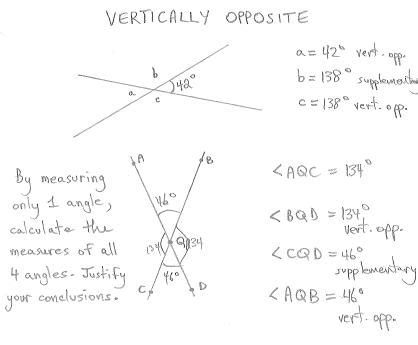 VERTICALLY OPPOSITE
b
a
c
42°
a = 42° vert. opp.
b = 138° supplementary
c = 138° vert. opp.
By measuring
only 1 angle,
calculate the
measures of all
4 angles. Justify
your conclusions.
A
B
46°
134
Q
134
46°
C
D
<AQC = 134°
<BQD = 134°
vert. opp.
<CQD = 46°
supplementary
<AQB = 46°
vert. opp.